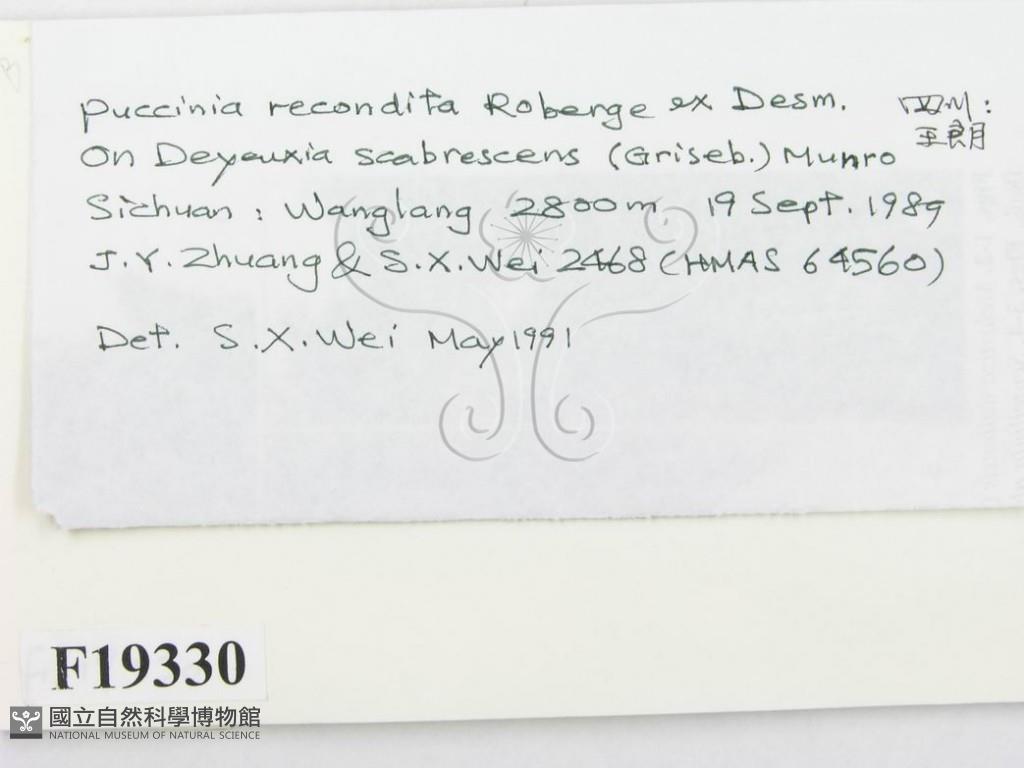 Puccinia recondita Roberge ex Desm.
四川:
王朗
On Deyeuxia scabrescens (Griseb.) Munro
Sichuan: Wanglang 2800m, 19 Sept. 1989
J.Y. Zhuang & S.X. Wei 2468 (HMAS 64560)
Det. S.X. Wei May 1991
F19330
國立自然科學博物館
NATIONAL MUSEUM OF NATURAL SCIENCE